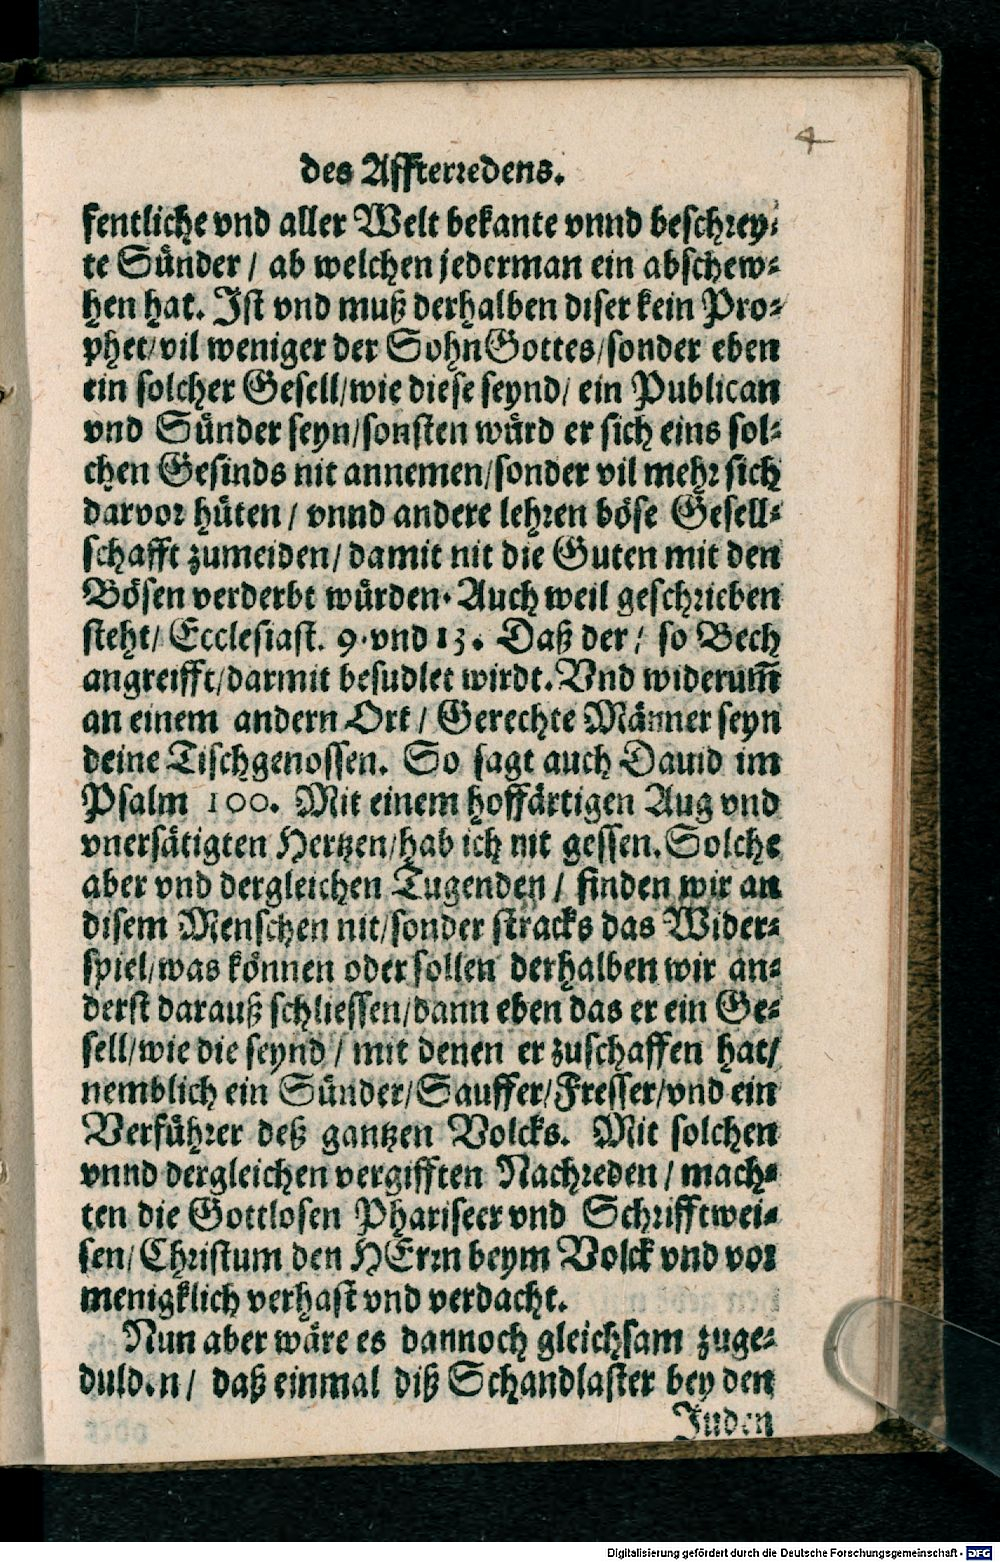 4
des Affterredens.
fentliche vnd aller Welt bekante vnnd beschrey-
te Sünder / ab welchen jederman ein abschew-
hen hat. Ist vnd muß derhalben diser kein Pro-
phet/vil weniger der Sohn Gottes/sonder eben
ein solcher Gesell/wie diese seynd/ ein Publican
vnd Sünder seyn/sonsten würd er sich eins sol-
chen Gesinds nit annemen/sonder vil mehr sich
darvor hüten / vnnd andere lehren böse Gesell-
schafft zumeiden/damit nit die Guten mit den
Bösen verderbt würden. Auch weil geschrieben
steht/ Ecclesiast. 9. vnd 13. Daß der / so Bech
angreifft/darmit besudlet wirdt. Vnd widerum̃
an einem andern Ort / Gerechte Männer seyn
deine Tischgenossen. So sagt auch Dauid im
Psalm 100. Mit einem hoffärtigen Aug vnd
vnersätigten Hertzen/hab ich nit gessen. Solche
aber vnd dergleichen Tugenden / finden wir an
disem Menschen nit/sonder stracks das Wider-
spiel/was können oder sollen derhalben wir an-
derst darauß schliessen/dann eben das er ein Ge-
sell/wie die seynd / mit denen er zuschaffen hat/
nemblich ein Sünder/Sauffer/Fresser/vnd ein
Verführer deß gantzen Volcks. Mit solchen
vnnd dergleichen vergifften Nachreden / mach-
ten die Gottlosen Phariseer vnd Schrifftwei-
sen/Christum den HErrn beym Volck vnd vor
menigklich verhast vnd verdacht.
Nun aber wäre es dannoch gleichsam zuge-
dulden / daß einmal diß Schandlaster bey den
Juden
Digitalisierung gefördert durch die Deutsche Forschungsgemeinschaft - DFG